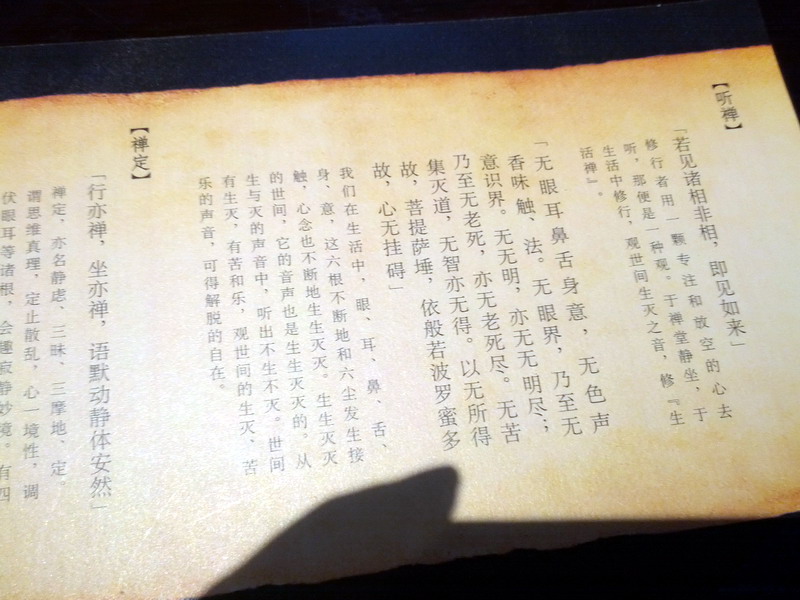 【听禅】
「若见诸相非相，即见如来」
修行者用一颗专注和放空的心去
听，那便是一种观。于禅堂静坐，于
生活中修行，观世间生灭之音，修『生
活禅』。
「无眼耳鼻舌身意，无色声
香味触、法。无眼界，乃至无
意识界。无无明，亦无无明尽；
乃至无老死，亦无老死尽。无苦
集灭道，无智亦无得。以无所得
故，菩提萨埵，依般若波罗蜜多
故，心无挂碍」
我们在生活中，眼、耳、鼻、舌、
身、意，这六根不断地和六尘发生接
触，心念也不断地生生灭灭。生生灭灭
的世间，它的音声也是生生灭灭的。从
生与灭的声音中，听出不生不灭。世间
有生灭，有苦和乐，观世间的生灭、苦
乐的声音，可得解脱的自在。
【禅定】
「行亦禅，坐亦禅，语默动静体安然」
禅定，亦名静虑、三昧、三摩地、定。
谓思维真理，定止散乱，心一境性，调
伏眼耳等诸根，会趣寂静妙境。有四